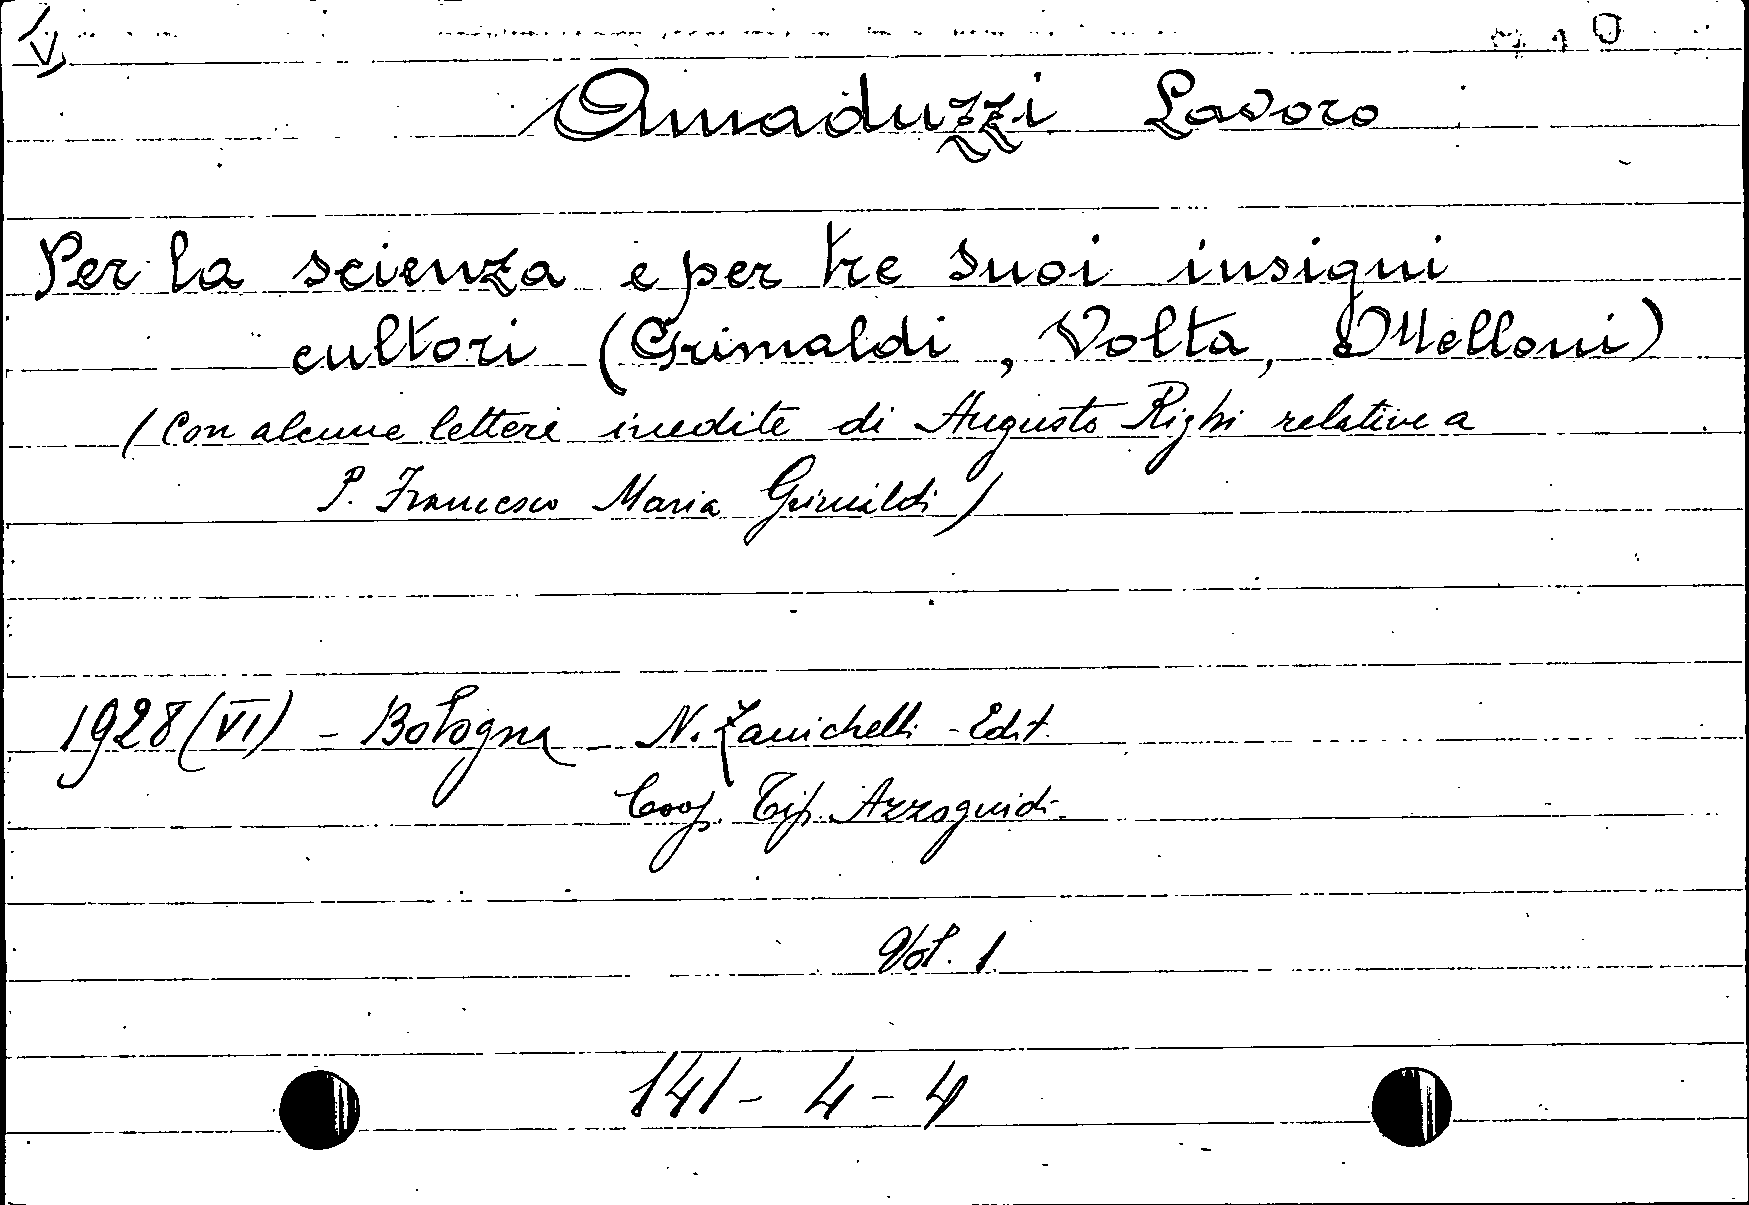 Amaduzzi Lavoro
Per la scienza e per tre suoi insigni
cultori (Grimaldi, Volta, Melloni)
(Con alcune lettere inedite di Augusto Righi relative a
P. Francesco Maria Grimaldi)
1928 (VI) - Bologna - N. Zanichelli - Edit.
Coop. Tip. Azzoguidi -
Vol. 1
141 - 4 - 4